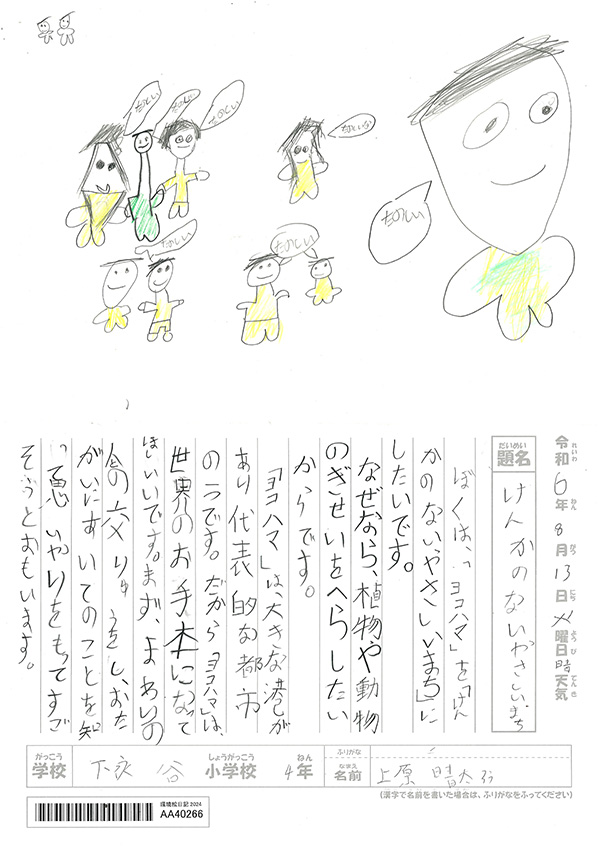 たのしい
たのしい
たのしい
たのしいな
たのしい
たのしい
たのしい
令和6年8月13日火曜日 天気
れいわ ねん がつ にち ようび てんき
だいめい
題名
けんかのないやさしいまち
ぼくは、「ヨコハマ」を「けん
かのないやさしいまち」に
したいです。
なぜなら、植物や動物
のぎせいをへらしたい
からです。
「ヨコハマ」は、大きな港が
あり代表的な都市
の一つです。だから「ヨコハマ」は、
世界のお手本になって
ほしいいです。まず、
の交りゅうをし、おた
がいにあいてのことを知
って思いやりをもってすご
そうとおもいます。
がっこう しょうがっこう ねん ふりがな
学校 下永谷 小学校 4年
なまえ
名前 上原 晴太
(漢字で名前を書いた場合は、ふりがなをふってください)
環境絵日記2024
AA40266